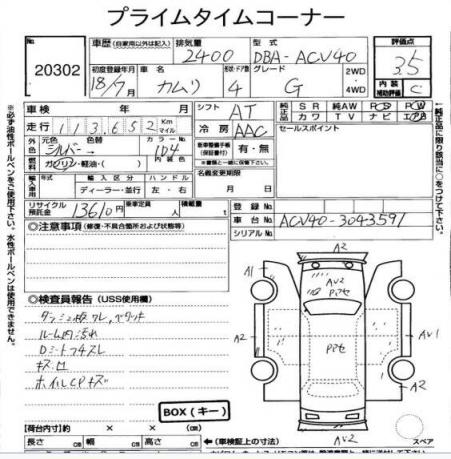 プライムタイムコーナー
No.
20302
車歴(自家用以外は記入)
排気量
2400
型式
DBA-ACV40
評価点
3.5
初度登録年月
18/7
車名
カムリ
形状・ドア数
4
グレード
G
2WD
4WD
内装
補助評価
C
車検 年 月
シフト
AT
純正品
SR 純AW PS PW
カワ TV ナビ エアB
走行
113,652
Km
マイル
冷房
AAC
セールスポイント
外装
元色
シルバー→
色替
カラーNo.
1D4
乗車整備手帳
(保証書付)
有・無
燃料
ガソリン・軽油・( )
内装色
※書類と一緒に保管下さい。
輸入車用
年式
輸入区分
ハンドル
ディーラー・並行
左・右
名義変更期限
月 日
リサイクル
預託金
13610円
乗車定員
人
積載量
t
登録No.
車台No.
ACV40-3043591
シリアルNo.
◎注意事項(修復・不具合箇所および状態等)
◎検査員報告(USS使用欄)
ダッシュ板ワレ、ベタツキ
ルーム内汚れ
Dシートフチスレ
キズ凹
ホイルCPキズ
BOX(キー)
A2
A1
A2
AV2
Pアセ
Pアセ
A2
AV1
A2
AV2
スペア
【荷台内寸】 × × (cm)
長さ cm 幅 cm 高さ cm
(車検証上の寸法)
※必ず油性ボールペンをご使用下さい。水性ボールペンは使用できません。
↑純正品に限り該当に○をつけて下さい。